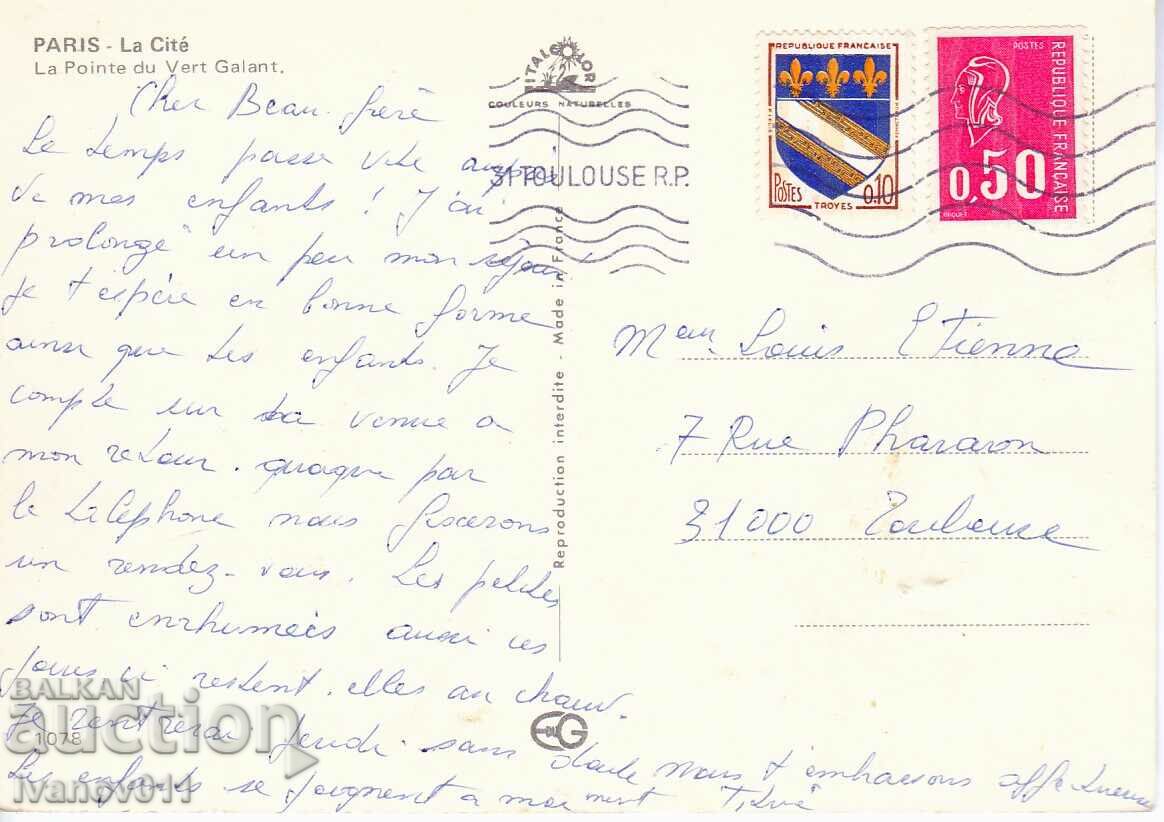 PARIS - La Cité
La Pointe du Vert Galant.
Cher Beau-frère
Le temps passe vite auprès
de mes enfants ! J'ai
prolongé un peu mon séjour!
Je t'espère en bonne forme
ainsi que tes enfants. Je
compte sur ta venue a
mon retour. quaque par
le telephone nous fixerons
un rendez-vous. Les petites
sont enrhumées aussi ces
jours ci restent-elles au chaud.
Je rentrerai Jeudi sans doute nous t'embrassons affectueuse
Les enfants se joignent a moi
ITALCOLOR
COULEURS NATURELLES
31 TOULOUSE R.P.
Reproduction interdite - Made in France
REPUBLIQUE FRANÇAISE
POSTES
TROYES
0.10
POSTES
REPUBLIQUE FRANÇAISE
0,50
BEQUET
Louis Etienne
7 Rue Pharaon
31000 Toulouse
EG
1078
BALKAN
auction
ivanov011